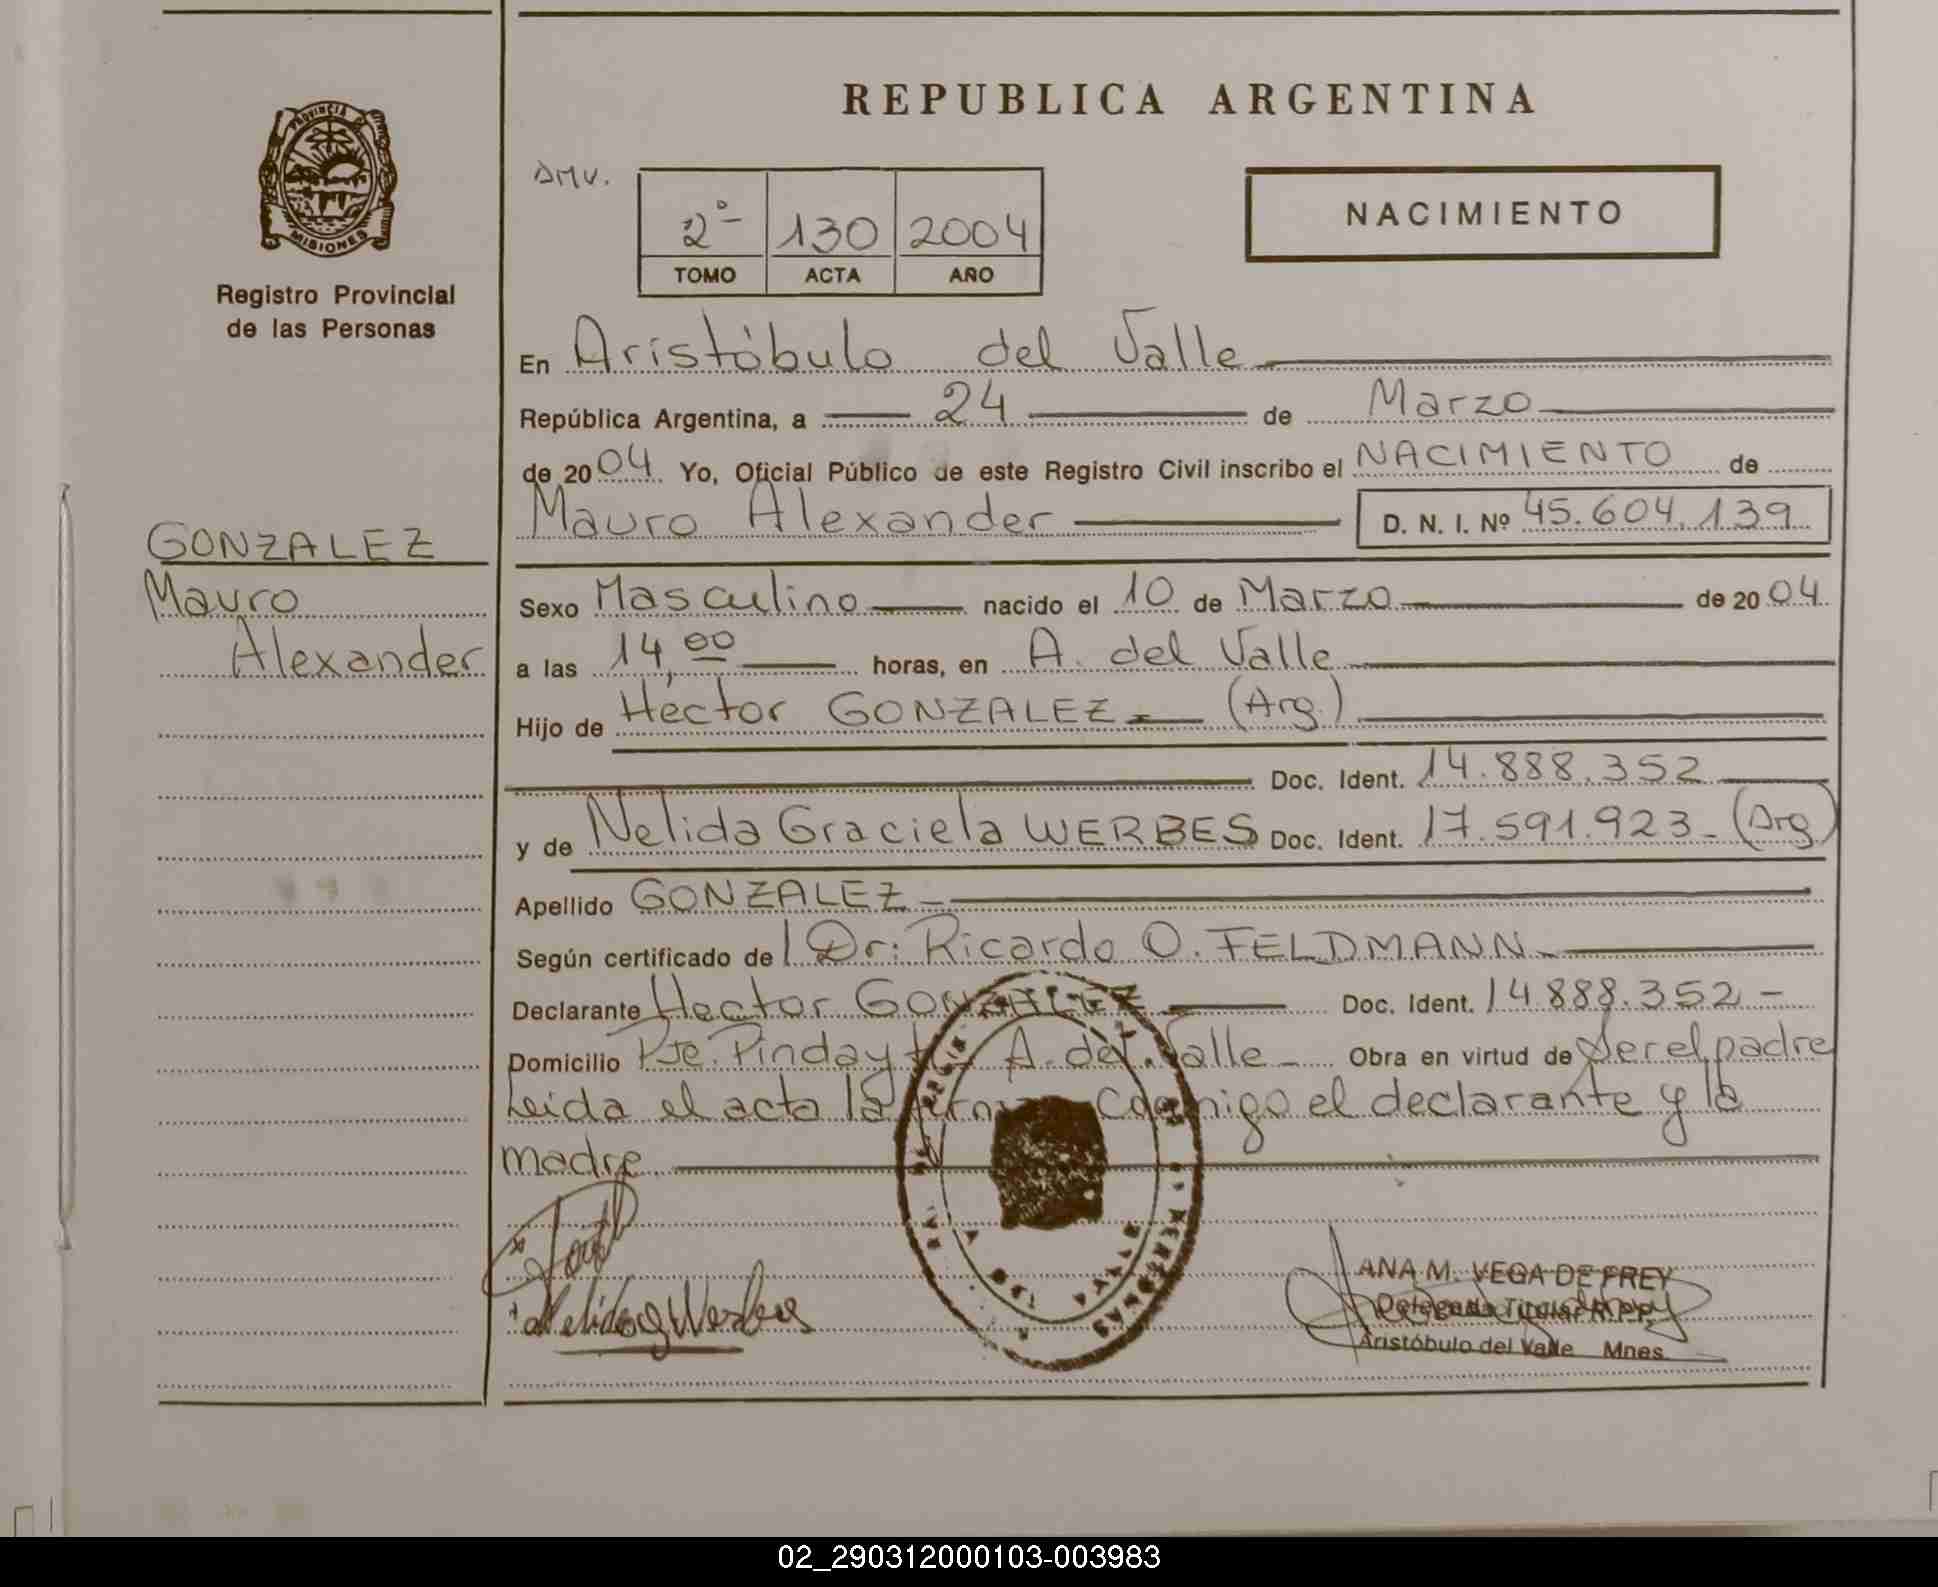 REPUBLICA ARGENTINA
PROVINCIA DE
MISIONES
Registro Provincial
de las Personas
DMV.
2º 130 2004
TOMO ACTA AÑO
NACIMIENTO
En Aristóbulo del Valle
República Argentina, a 24 de Marzo
de 2004 Yo, Oficial Público de este Registro Civil inscribo el NACIMIENTO de
Mauro Alexander D. N. I. Nº 45.604.139
GONZALEZ
Mauro
Alexander
Sexo Masculino nacido el 10 de Marzo de 2004
a las 14,00 horas, en A. del Valle
Hijo de Héctor GONZALEZ (Arg.)
Doc. Ident. 14.888.352
y de Nelida Graciela WERBES Doc. Ident. 17.591.923 - (Arg)
Apellido GONZALEZ
Según certificado de l Dr: Ricardo O. FELDMANN
Declarante Hector GONZALEZ Doc. Ident. 14.888.352 -
Domicilio Pje. Pindayty A. del Valle - Obra en virtud de Ser el padre
Leida el acta la firman Conmigo el declarante y la
madre
PERSONAS
Nelida G Werbes
ANA M. VEGA DE FREY
Delegada Titular R.P.P.
Aristóbulo del Valle Mnes.
02_290312000103-003983